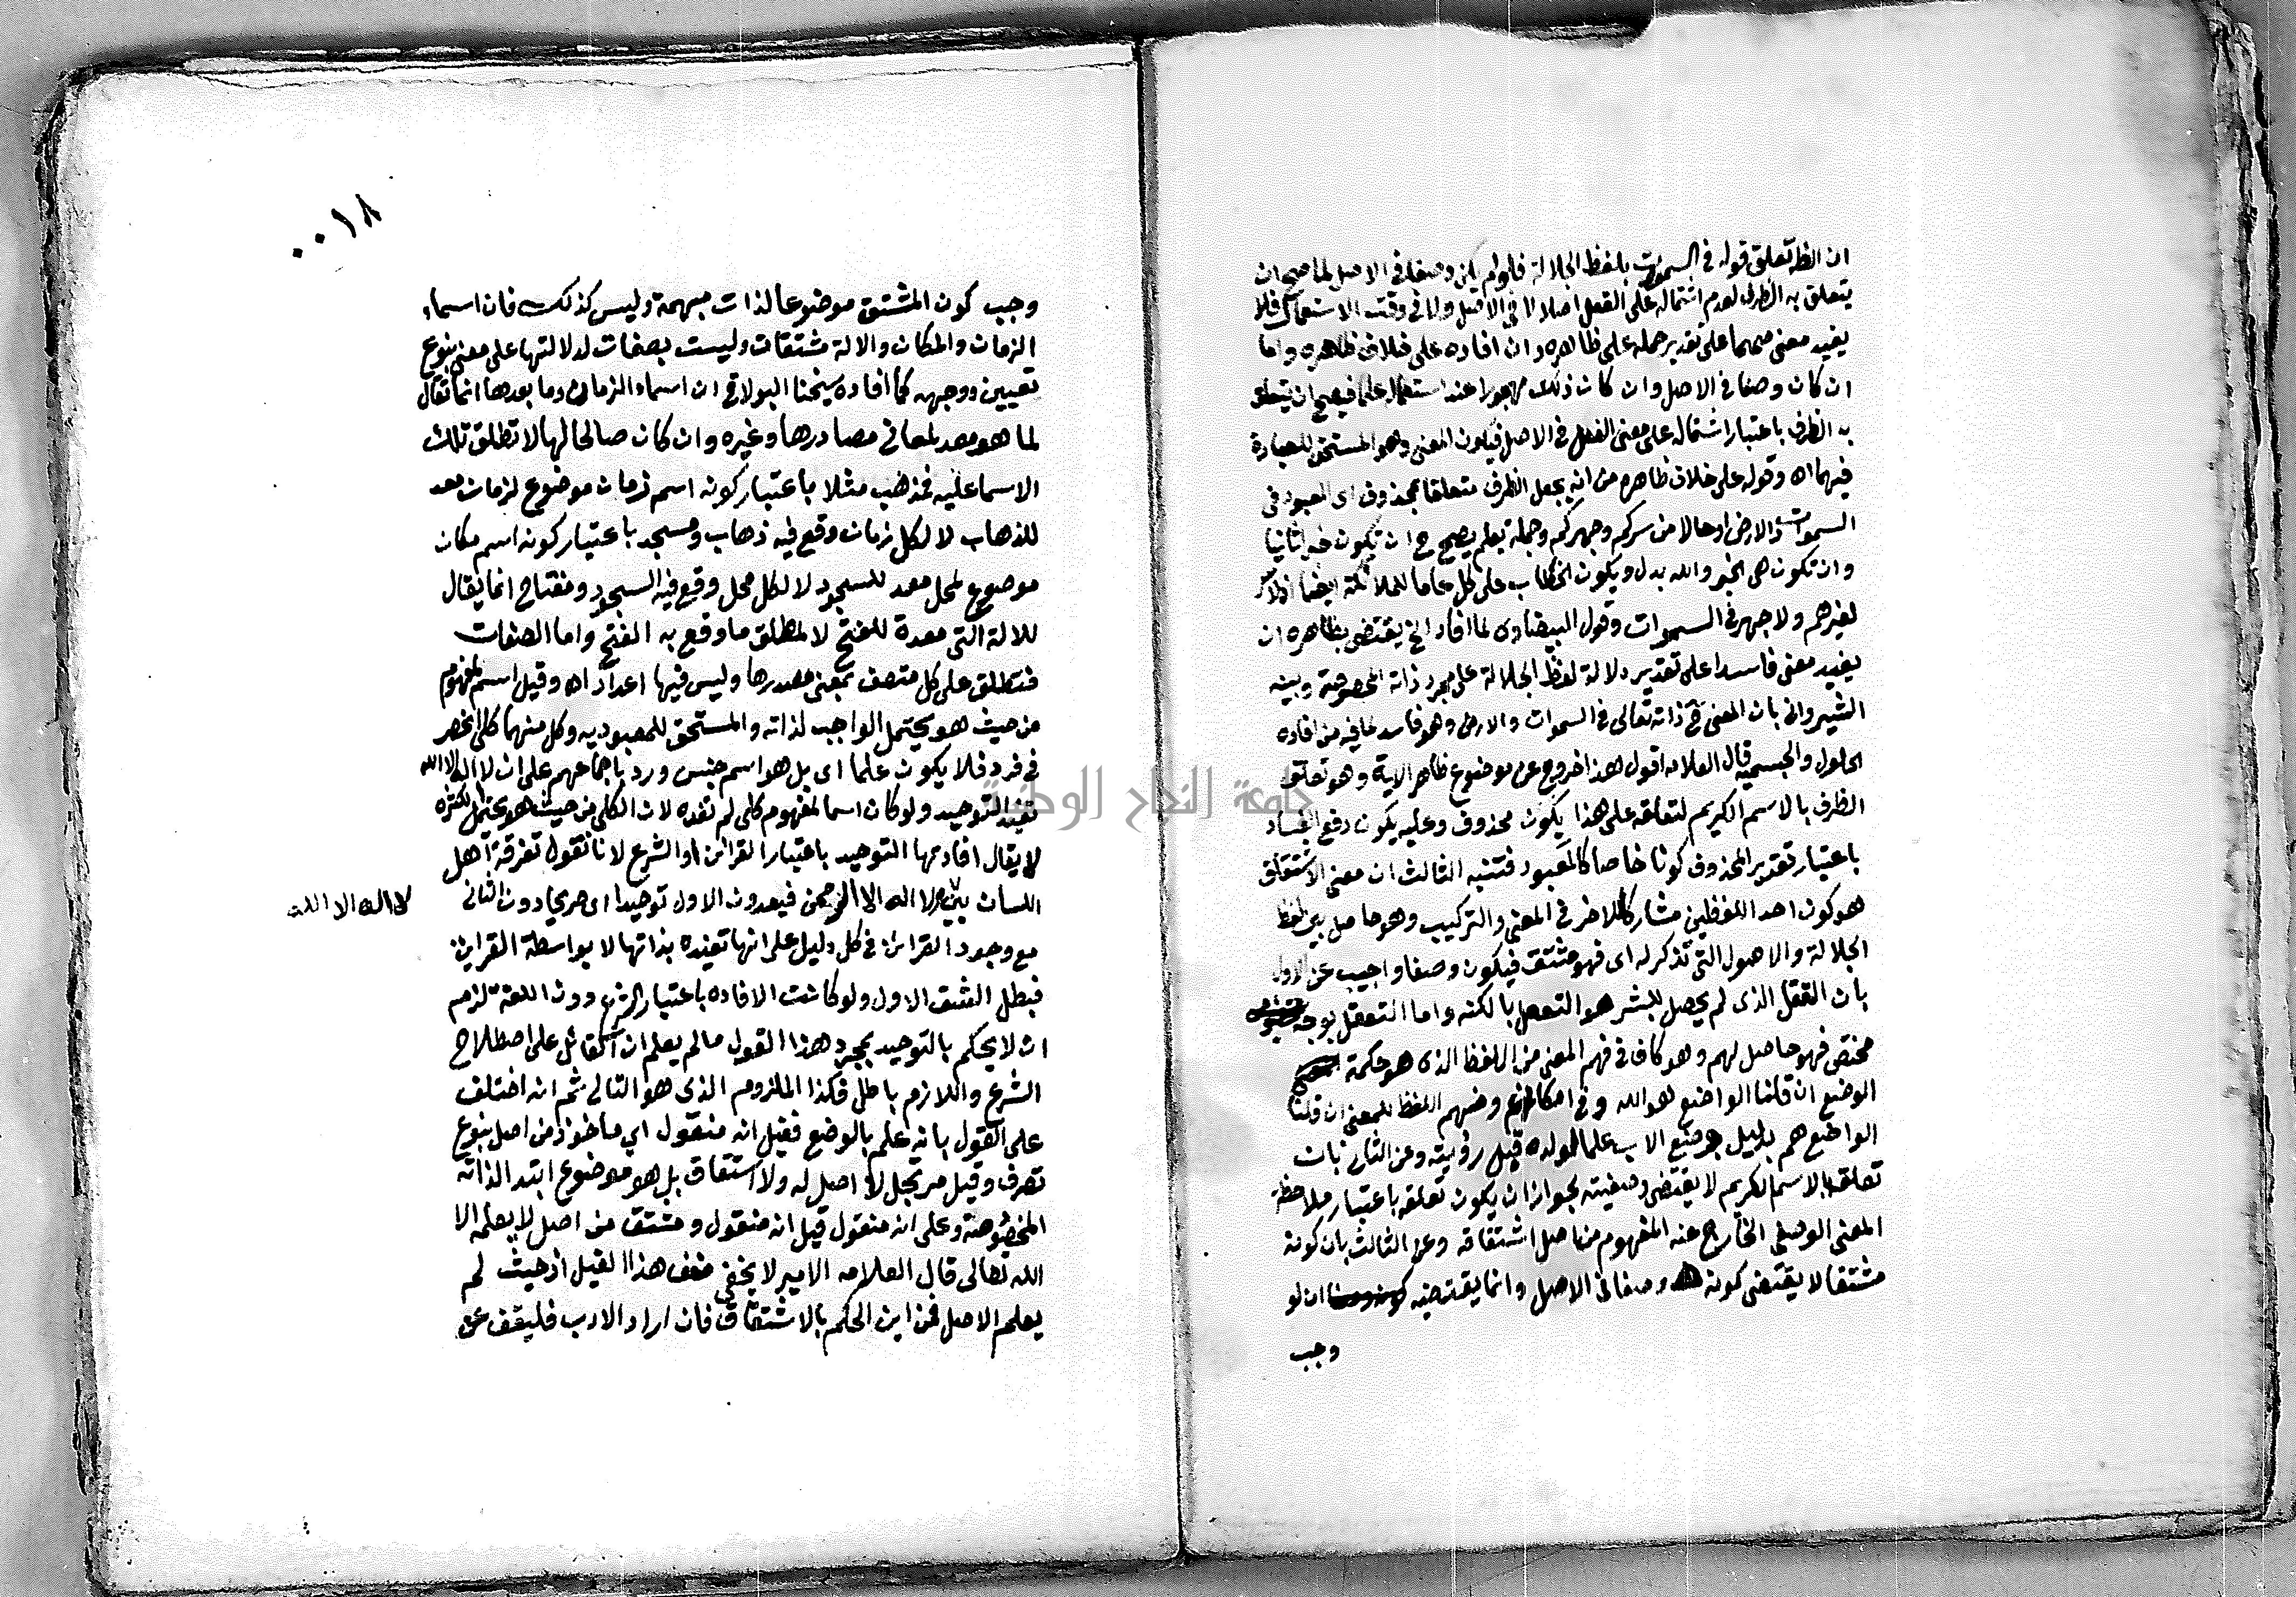 ان الظ تعلق قوله في السموات بلفظ الجلالة فلو لم يكن وصفا في الاصل لما صح ان
يتعلق به الظرف لعدم اشتماله على الفعل اصلا لا في الاصل ولا في وقت الاستعمال فلا
يفيد معنى صحيحا على تقدير حمله على ظاهره وان افاده على خلاف ظاهره واما
ان كان وصفا في الاصل وان كان ذلك مهجورا عند استعماله علما فيصح ان يتعلق
به الظرف باعتبار اشتماله على معنى الفعل في الاصل فيكون المعنى وهو المستحق للعبادة
فيهما اه وقوله على خلاف ظاهره من انه يجعل الظرف متعلقا بمحذوف اى المعبود في
السموات والارض او حالا من سركم وجهركم وجملة يعلم يصح ح ان تكون خبرا ثانيا
وان تكون هي الخبر والله بدل ويكون الخطاب على كل عاما للملائكة ايضا اذ لا سر
لغيرهم ولا جهر في السموات وقول البيضاوى لما افاد الخ يقتضى بظاهره ان
يفيد معنى فاسدا على تقدير دلالة لفظ الجلالة على مجرد ذاته المخصوصة وبينه
الشيروانى بان المعنى ح ذاته تعالى في السموات والارض وهو فاسد لما فيه من افاده
الحلول والجسمية قال العلامه اقول هذا خروج عن موضوع ظاهر الاية وهو تعلق
الظرف بالاسم الكريم لتعلقه على هذا يكون محذوف وعليه يكون دفع الفساد
باعتبار تقدير المحذوف كونا خاصا كالمعبود فتنبه الثالث ان معنى الاشتقاق
هو كون احد اللفظين مشاركا للاخر في المعنى والتركيب وهو حاصل بين لفظ
الجلالة والاصول التي تذكر له اى فهو مشتق فيكون وصفا واجيب عن الاول
بان التعقل الذى لم يحصل للبشر هو التعقل بالكنه واما التعقل بوجه
مختص فهو حاصل لهم وهو كاف في فهم المعنى من اللفظ الذى هو حكمة
الوضع ان قلنا الواضع هو الله وفي امكان وضعهم اللفظ للمعنى ان قلنا
الواضع هم بدليل وضع الاب علما لولده قبل رؤيته وعن الثانى بان
تعلقه بالاسم الكريم لا يقتضى وصفيته لجواز ان يكون تعلقه باعتبار ملاحظة
المعنى الوصفى الخارج عنه المفهوم من اصل اشتقاقه وعن الثالث بان كونه
مشتقا لا يقتضى كونه وصفا في الاصل وانما يقتضيه ان لو
وجب
٠٠١٨
وجب كون المشتق موضوعا لذات مبهمة وليس كذلك فان اسماء
الزمان والمكان والالة مشتقات وليست بصفات لدلالتها على معنى بنوع
تعيين ووجهه كما افاده شيخنا البولاقي ان اسماء الزمان وما بعدها انما تقال
لما هو معد لمعانى مصادرها وغيره وان كان صالحا لها لا تطلق تلك
الاسما عليه فمذهب مثلا باعتبار كونه اسم زمان موضوع لزمان معد
للذهاب لا لكل زمان وقع فيه ذهاب ومسجد باعتبار كونه اسم مكان
موضوع لمحل معد للسجود لا لكل محل وقع فيه السجود ومفتاح انما يقال
للالة التي معدة للفتح لا لمطلق ما وقع به الفتح واما الصفات
فتطلق على كل متصف بمعنى مصدرها وليس فيها اعداد اه وقيل اسم لمفهوم
من حيث هو يحتمل الواجب لذاته والمستحق للمعبوديه وكل منهما كلى انحصر
في فرد فلا يكون علما اى بل هو اسم جنس ورد باجماعهم على ان لا اله الا الله
تفيد التوحيد ولو كان اسما لمفهوم كلى لم تفده لان الكلى من حيث هو يحتمل الكثرة
لا يقال افادتها التوحيد باعتبار القرائن او الشرع لانا نقول تفرقة اهل
اللسان بين لا اله الا الرحمن فيعدون الاول توحيدا اى صريحا دون الثانى
لا اله الا الله
مع وجود القرائن في كل دليل على انها تفيده بذاتها لا بواسطة القراين
فبطل الشق الاول ولو كانت الافاده باعتبار الشرع دون اللغة لزم
ان لا يحكم بالتوحيد بمجرد هذا القول ما لم يعلم ان القائل على اصطلاح
الشرع واللازم باطل فكذا الملزوم الذى هو التالى ثم انه اختلف
على القول بانه علم بالوضع فقيل انه منقول اي مأخوذ من اصل بنوع
تصرف وقيل مرتجل لا اصل له ولا اشتقاق بل هو موضوع ابتدا لذاته
المخصوصة وعلى انه منقول قيل انه منقول ومشتق من اصل لا يعلمه الا
الله تعالى قال العلامه الامير لا يخفى ضعف هذا القيل اذ حيث لم
يعلم الاصل فمن اين الحكم بالاشتقاق فان اراد الادب فليقف عن